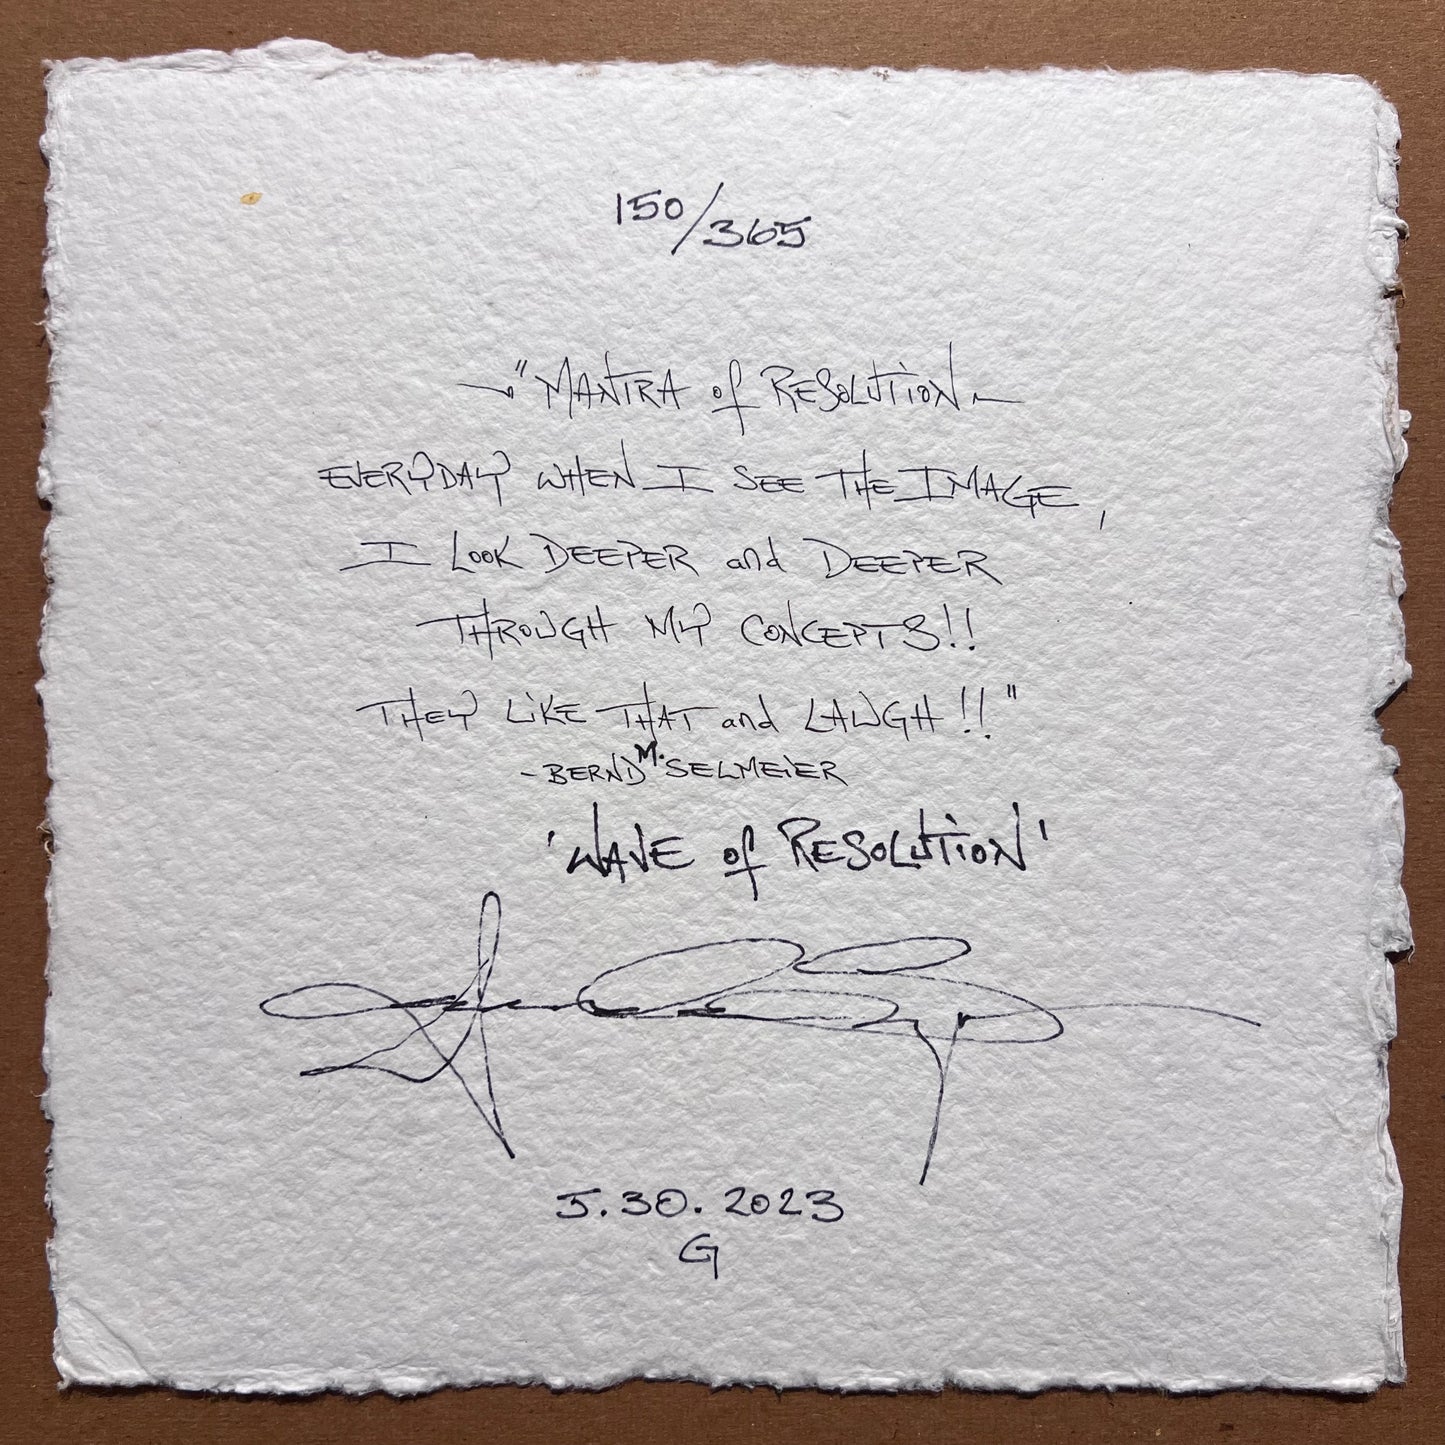 150/365
"MANTRA of RESOLUTION
EVERYDAY WHEN I SEE THE IMAGE,
I LOOK DEEPER and DEEPER
THROUGH MY CONCEPTS!!
THEY LIKE THAT and LAUGH!!"
- BERND M. SELMEIER
'WAVE of RESOLUTION'
5.30.2023
G